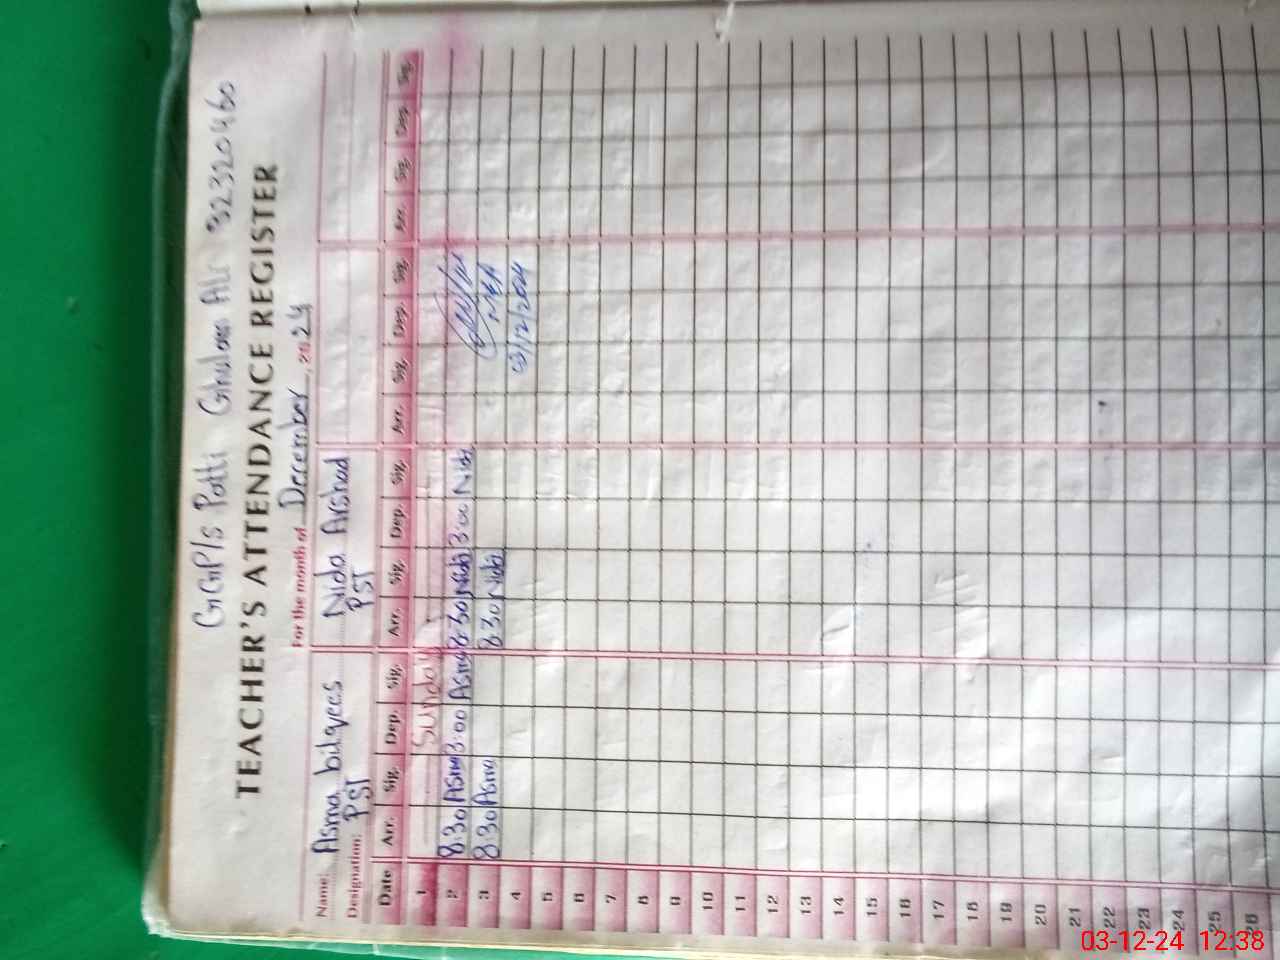 GGP/s Patti Ghulam Ali 32320460
TEACHER'S ATTENDANCE REGISTER
For the month of December, 2024
Name: Asma bilqees Nida Arshad
Designation: PST PST
Date Arr. Sig. Dep. Sig. Arr. Sig. Dep. Sig. Arr. Sig. Dep. Sig. Arr. Sig. Dep. Sig.
1 Sunday
2 8:30 Asma 3:00 Asma 8:30 Nida 3:00 Nida
3 8:30 Asma 8:30 Nida MEA
4 03/12/2024
5
6
7
8
9
10
11
12
13
14
15
16
17
18
19
20
21
22
23
24
25
26
03-12-24 12:38